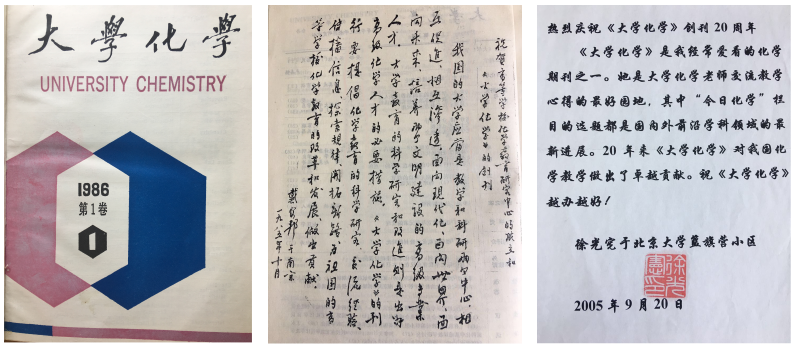 大學化學
UNIVERSITY CHEMISTRY
1986
第1卷
1
祝贺高等学校化学教育研究中心的成立和
《大学化学》的创刊
我国的大学应当是教学和科研两个中心，相
互促进，相互渗透，面向现代化、面向世界、面
向未来，培养两个文明建设的高级专业
人才。大学教育的科学研究和改进则是出好
高级化学人才的必要措施。《大学化学》的刊
行要提倡化学教育的科学研究，交流经验，
传播信息，探索规律，开拓新路，为祖国的高
等学校化学教育的改革和发展，做出贡献。
戴安邦 于南京
一九八五年十月
热烈庆祝《大学化学》创刊 20 周年
《大学化学》是我经常爱看的化学
期刊之一。她是大学化学老师交流教学
心得的最好园地，其中“今日化学”栏
目的选题都是国内外前沿学科领域的最
新进展。20 年来《大学化学》对我国化
学教学做出了卓越贡献。祝《大学化学》
越办越好！
徐光宪于北京大学蓝旗营小区
徐光宪印
2005 年 9 月 20 日